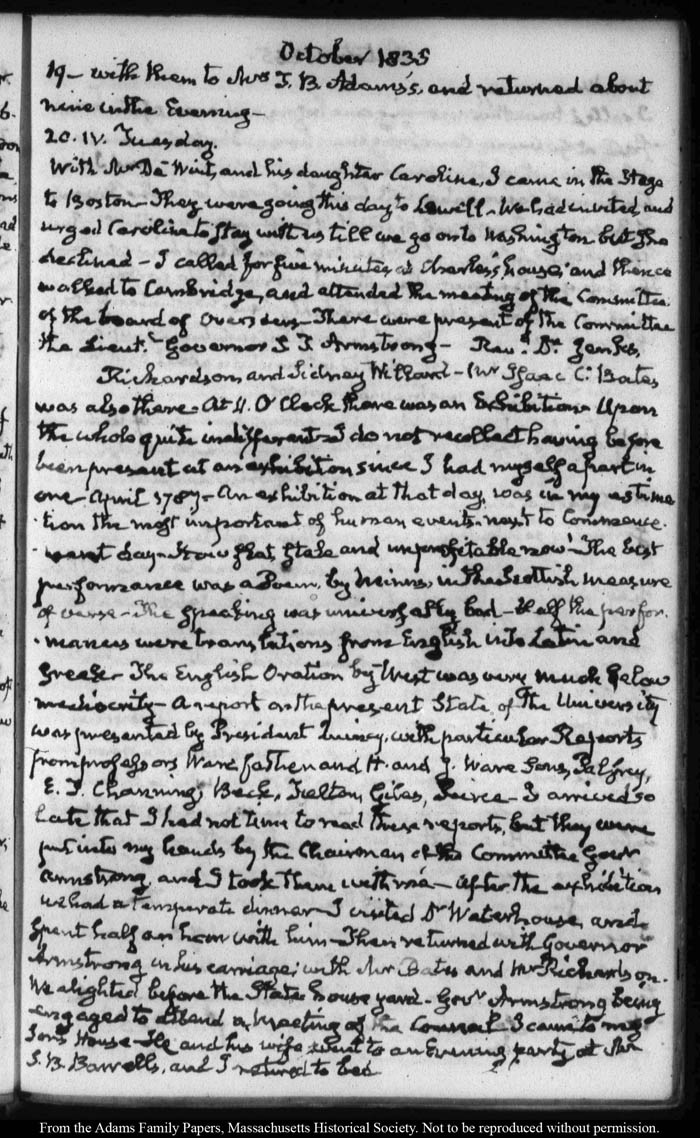 October 1835
19 - with them to Mrs T. B. Adams's, and returned about
nine in the Evening -
20. IV. Tuesday.
With Mr De Wint, and his daughter Caroline, I came in the Stage
to Boston - They were going this day to Lowell - We had invited, and
urged Caroline to stay with us till we go on to Washington but she
declined - I called for five minutes at Charles's house; and thence
walked to Cambridge, and attended the meeting of the Committee
of the board of Overseers - There were present of the Committee
the Lieut.t Governor S. T. Armstrong - Revd. Dr. Jenks,
Richardson, and Sidney Willard - Mr Isaac C. Bates
was also there - At 11. O'Clock there was an Exhibition - Upon
the whole quite indifferent - I do not recollect having before
been present at an exhibition since I had myself a part in
one - April 1787 - An exhibition at that day, was in my estima
tion the most important of human events - next to Commence-
-ment day - How flat, stale and unprofitable now! The best
performance was a Poem, by Minns, in the Scottish measure
of verse - The speaking was universally bad - Half the perfor-
-mances were translations from English into Latin and
Greek - The English Oration by West was very much below
mediocrity - A report on the present State of the University
was presented by President Quincy, with particular Reports
from professors Ware father and H. and J. Ware Sons, Palfrey,
E. T. Channing, Beck, Felton, Giles, Peirce - I arrived so
late that I had not time to read these reports, but they were
put into my hands by the Chairman of the Committee Govr
Armstrong, and I took them with me - After the exhibition
we had a temperate dinner - I visited Dr Waterhouse, and
spent half an hour with him - Then returned with Governor
Armstrong in his carriage; with Mr Bates and Mr Richardson.
We alighted before the State house yard - Govr Armstrong being
engaged to attend a meeting of the Council I came to my
Son's House - He and his wife went to an Evening party at Mr
S. B. Barrell's, and I retired to bed
From the Adams Family Papers, Massachusetts Historical Society. Not to be reproduced without permission.